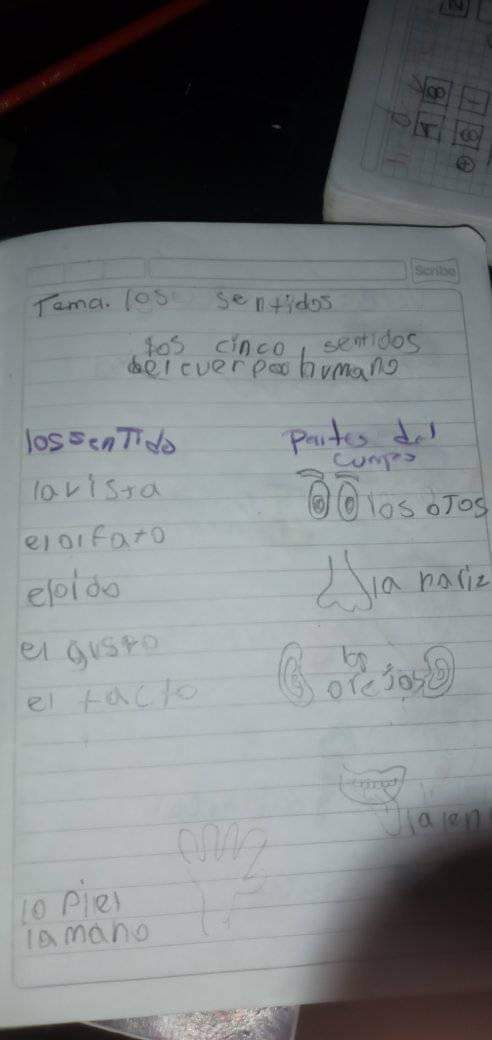 Scribe
Tema. los sentidos
los cinco sentidos
del cuerpo humano
los senTido
Partes del
cuerpo
la vista
los oJos
el olfato
la nariz
el oido
el gusto
los
orejos
el tacto
la len
lo Piel
la mano